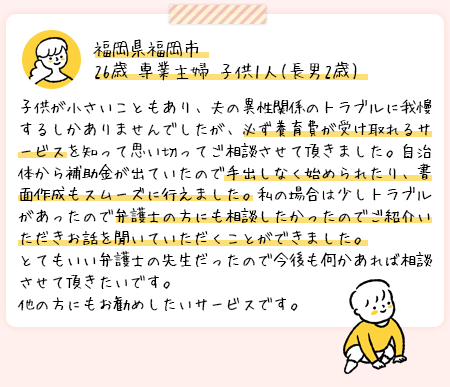 福岡県福岡市
26歳 専業主婦 子供1人(長男2歳)
子供が小さいこともあり、夫の異性関係のトラブルに我慢
するしかありませんでしたが、必ず養育費が受け取れるサ
ービスを知って思い切ってご相談させて頂きました。自治
体から補助金が出ていたので手出しなく始められたり、書
面作成もスムーズに行えました。私の場合は少しトラブル
があったので弁護士の方にも相談したかったのでご紹介い
ただきお話を聞いていただくことができました。
とてもいい弁護士の先生だったので今後も何かあれば相談
させて頂きたいです。
他の方にもお勧めしたいサービスです。